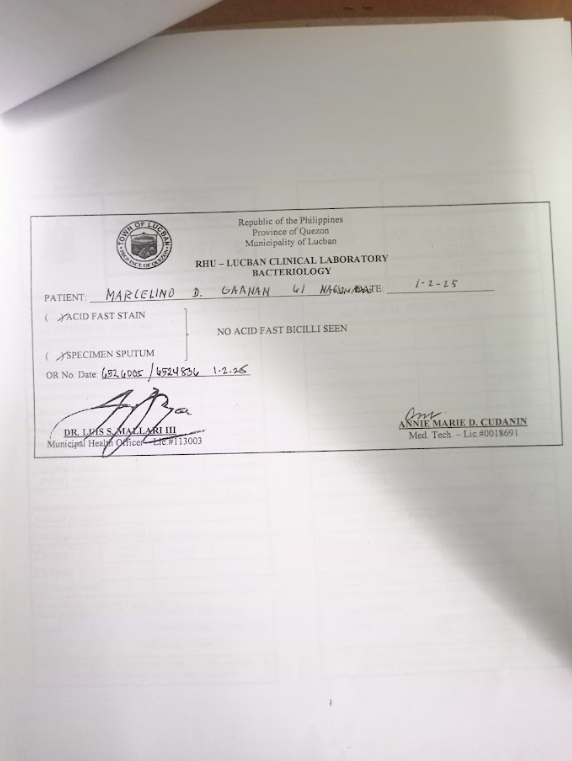 TOWN OF LUCBAN
PROVINCE OF QUEZON
Republic of the Philippines
Province of Quezon
Municipality of Lucban
RHU – LUCBAN CLINICAL LABORATORY
BACTERIOLOGY
PATIENT: MARCELINO D. GARNAN 61 DATE: 1-2-25
( ) ACID FAST STAIN
NO ACID FAST BICILLI SEEN
( ) SPECIMEN SPUTUM
OR No. Date: 6524836 1-2-25
DR. LUIS S. MALLARI III
Municipal Health Officer – Lic.#113003
ANNIE MARIE D. CUDANIN
Med. Tech. – Lic.#0018691